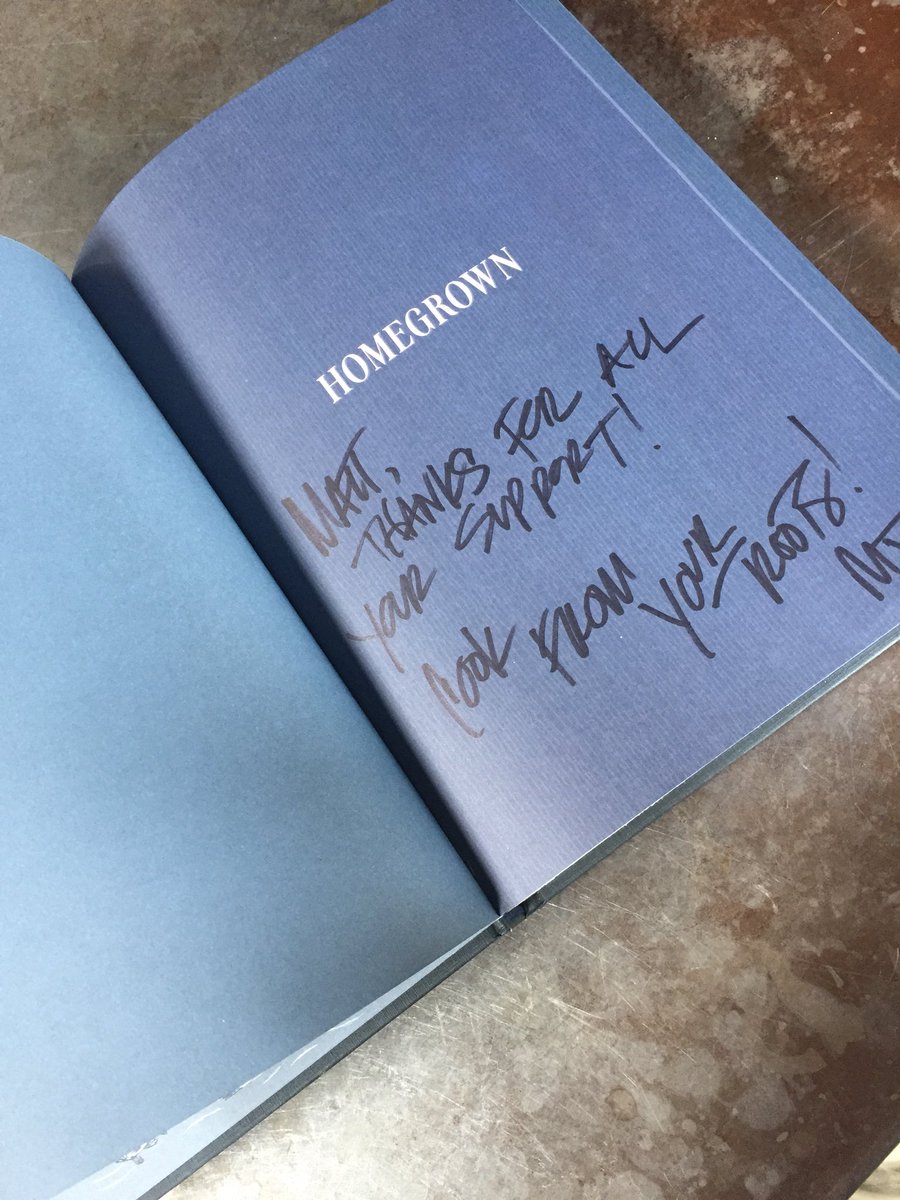 HOMEGROWN
MATT,
THANKS FOR ALL
YOUR SUPPORT!
COOK FROM YOUR ROOTS!